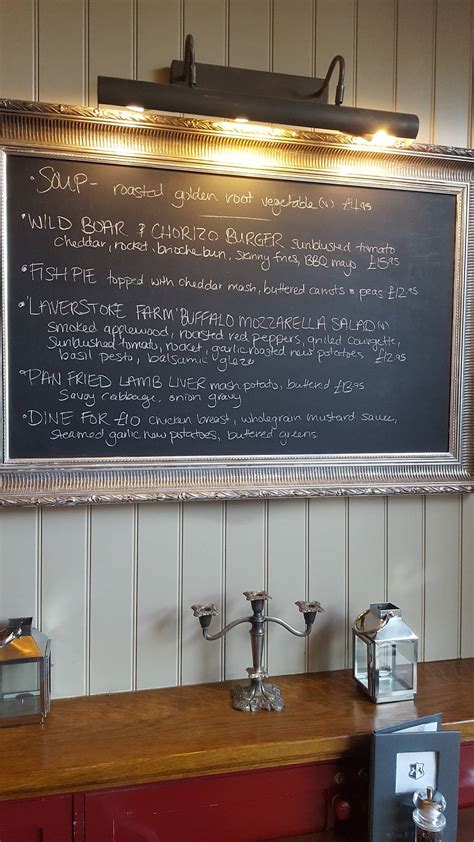 • SOUP - roasted golden root vegetable (v) £4.95
• WILD BOAR & CHORIZO BURGER sunblushed tomato
cheddar, rocket, brioche bun, skinny fries, BBQ mayo £15.95
• FISH PIE topped with cheddar mash, buttered carrots & peas £12.95
• 'LAVERSTOKE FARM' BUFFALO MOZZARELLA SALAD (v)
smoked applewood, roasted red peppers, grilled courgette,
Sunblushed tomato, rocket, garlic roasted new potatoes £12.95
basil pesto, balsamic glaze
• PAN FRIED LAMB LIVER mash potato, buttered £13.95
Savoy cabbage, onion gravy
• DINE FOR £10 chicken breast, wholegrain mustard sauce,
steamed garlic new potatoes, buttered greens.